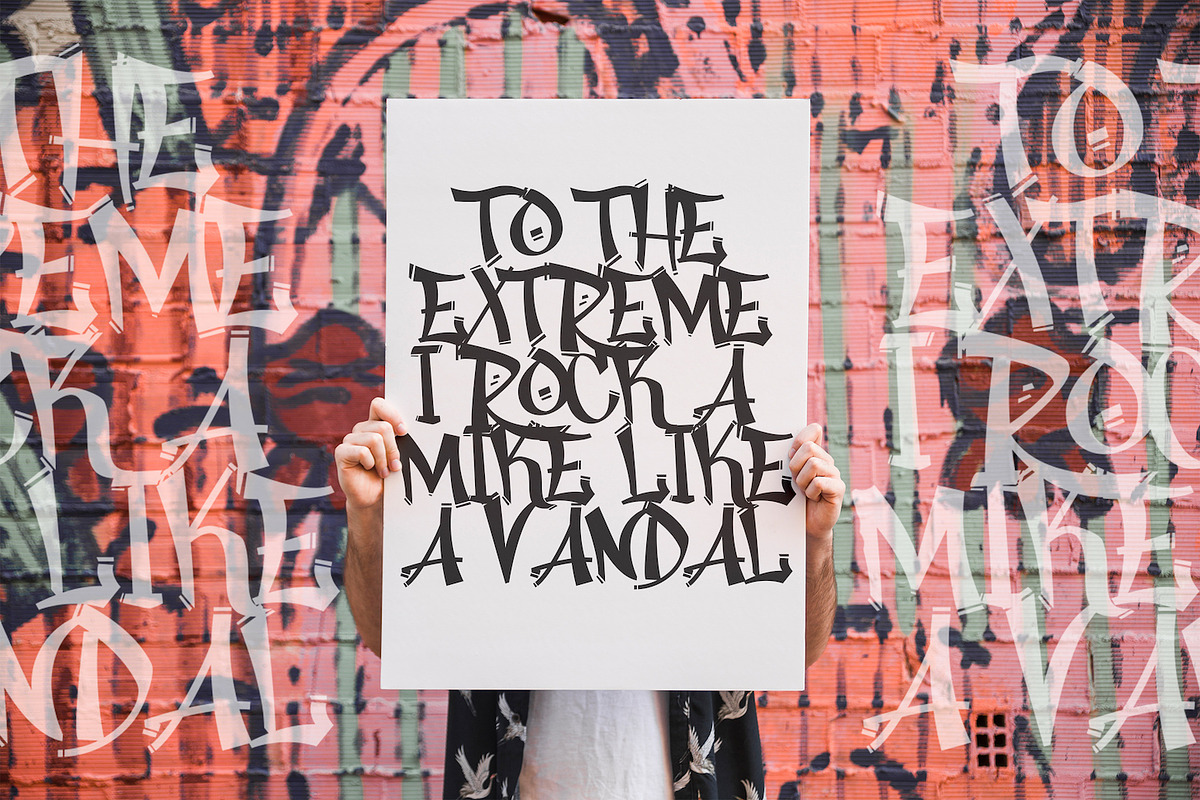 TO THE
EXTREME
I ROCK A
MIKE LIKE
A VANDAL
THE
EME
CK A
LIKE
NDAL
TO T
EXTR
I ROC
MIKE
A VA